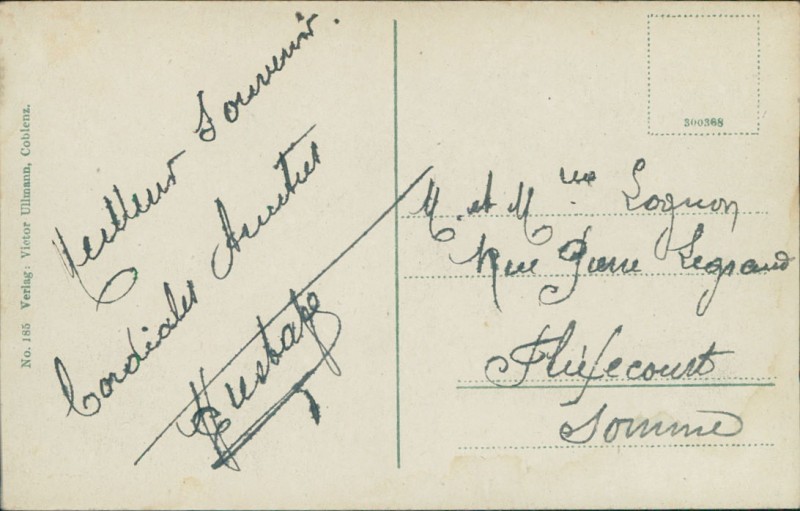 No. 185 Verlag: Victor Ullmann, Coblenz.
Meilleur Souvenir.
Cordiales Amitiés
300368
M. et Mme Lognon
Rue Pierre Legrand
Flixecourt
Somme